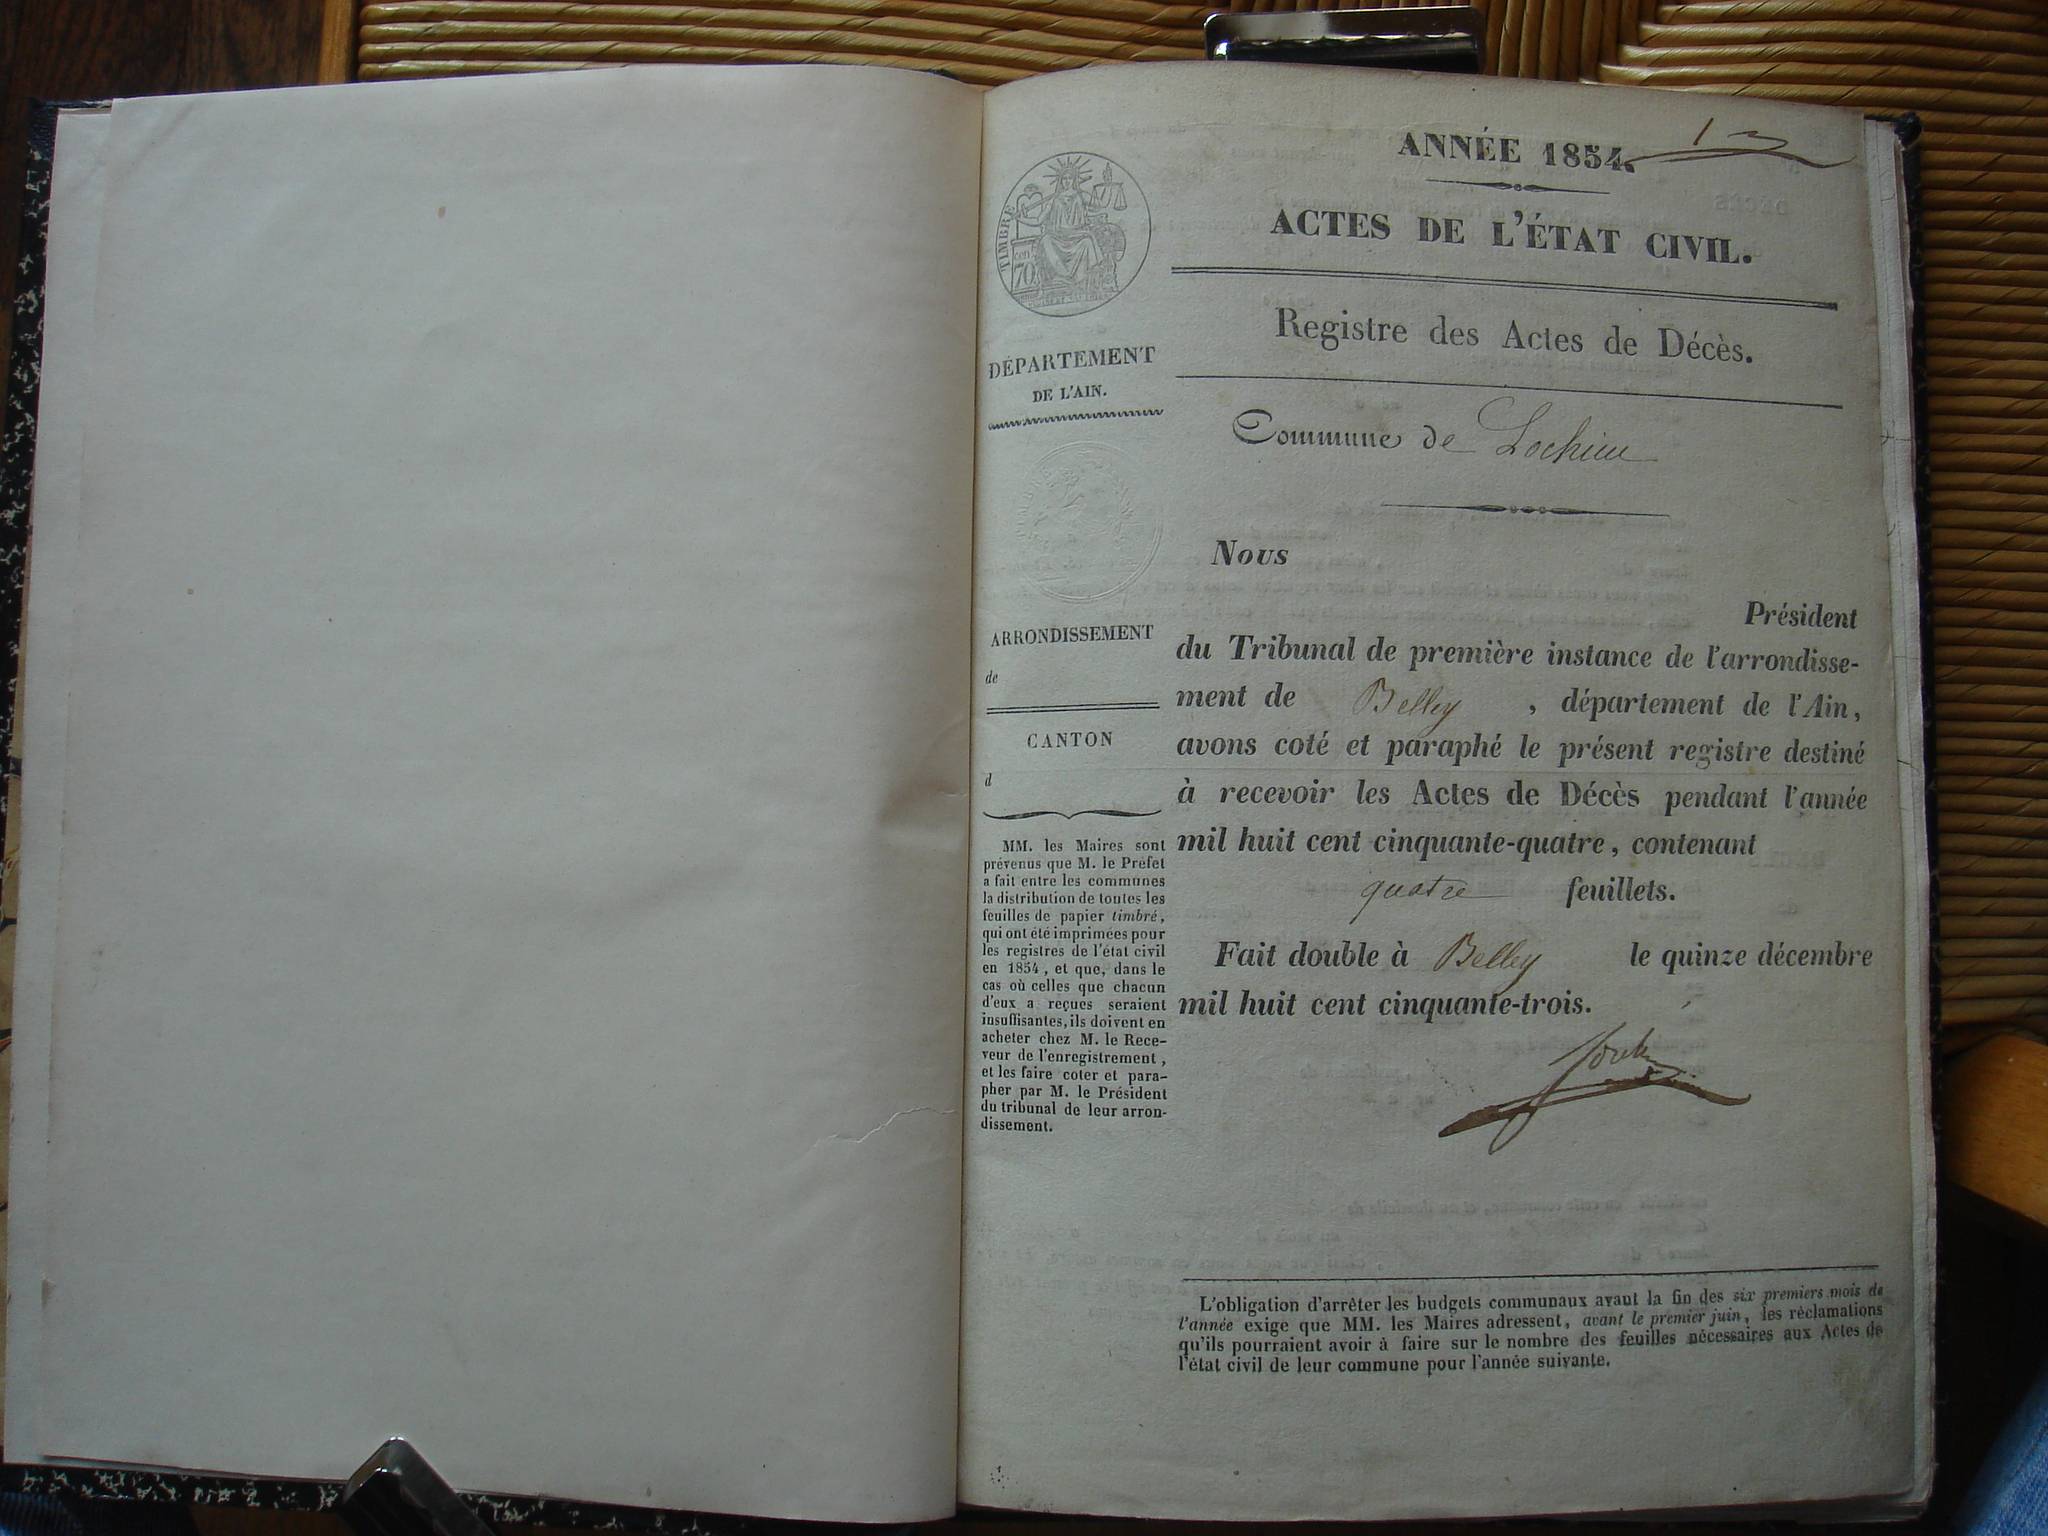 1
ANNÉE 1854.
ACTES DE L'ÉTAT CIVIL.
Registre des Actes de Décès.
Commune de Lochieu
TIMBRE
cen 70
DÉPARTEMENT
DE L'AIN.
ARRONDISSEMENT
de
CANTON
d
MM. les Maires sont
prévenus que M. le Préfet
a fait entre les communes
la distribution de toutes les
feuilles de papier timbré,
qui ont été imprimées pour
les registres de l'état civil
en 1854, et que, dans le
cas où celles que chacun
d'eux a reçues seraient
insuffisantes, ils doivent en
acheter chez M. le Rece-
veur de l'enregistrement,
et les faire coter et para-
pher par M. le Président
du tribunal de leur arron-
dissement.
Nous
Président
du Tribunal de première instance de l'arrondisse-
ment de Belley, département de l'Ain,
avons coté et paraphé le présent registre destiné
à recevoir les Actes de Décès pendant l'année
mil huit cent cinquante-quatre, contenant
quatre feuillets.
Fait double à Belley le quinze décembre
mil huit cent cinquante-trois.
L'obligation d'arrêter les budgets communaux avant la fin des six premiers mois de
l'année exige que MM. les Maires adressent, avant le premier juin, les réclamations
qu'ils pourraient avoir à faire sur le nombre des feuilles nécessaires aux Actes de
l'état civil de leur commune pour l'année suivante.